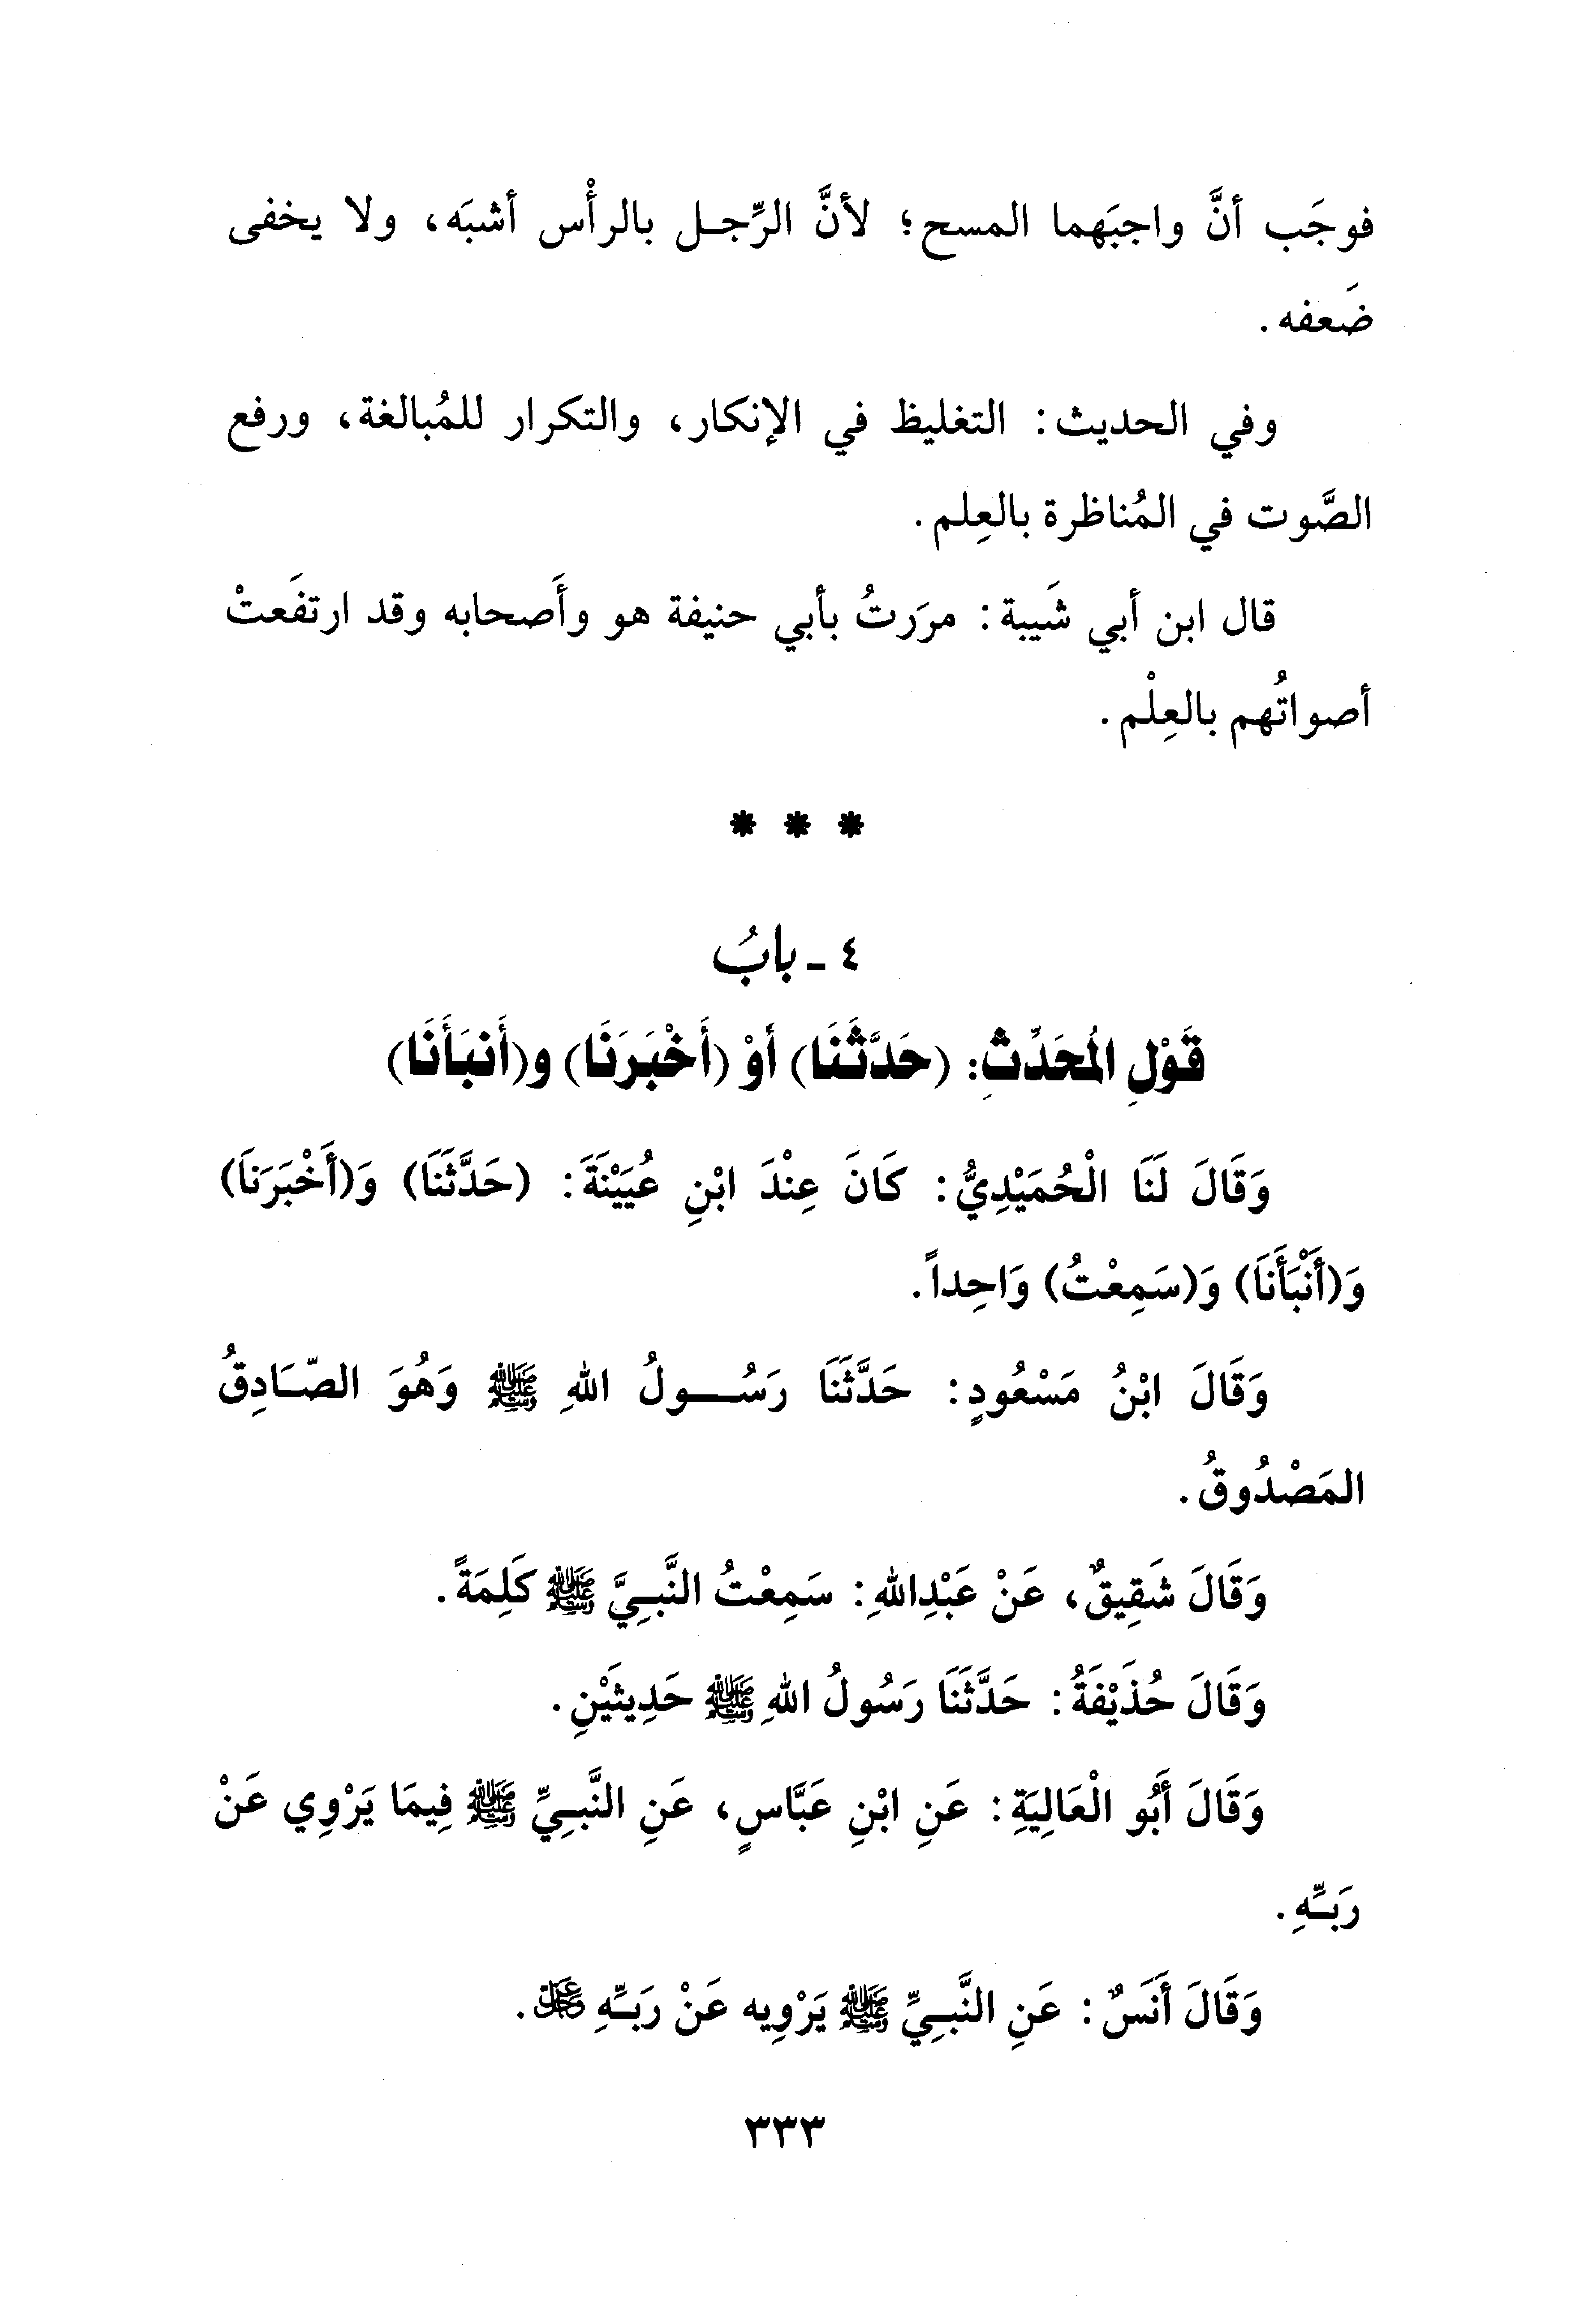 فوجَب أنَّ واجبَهما المسح؛ لأنَّ الرِّجـل بالرأْس أشبَه، ولا يخفى
ضَعفه.
وفي الحديث: التغليظ في الإنكار، والتكرار للمُبالغة، ورفع
الصَّوت في المُناظرة بالعِلم.
قال ابن أبي شَيبة: مرَرتُ بأبي حنيفة هو وأَصحابه وقد ارتفَعتْ
أصواتُهم بالعِلْم.
* * *
٤ ـ بابُ
قَوْلِ المُحَدِّثِ: (حَدَّثَنَا) أوْ (أَخْبَرَنَا) و(أَنبَأَنَا)
وَقَالَ لَنَا الْحُمَيْدِيُّ: كَانَ عِنْدَ ابْنِ عُيَيْنَةَ: (حَدَّثَنَا) وَ(أَخْبَرَنَا)
وَ(أَنْبَأَنَا) وَ(سَمِعْتُ) وَاحِداً.
وَقَالَ ابْنُ مَسْعُودٍ: حَدَّثَنَا رَسُـــولُ اللهِ ﷺ وَهُوَ الصَّـادِقُ
المَصْدُوقُ.
وَقَالَ شَقِيقٌ، عَنْ عَبْدِاللهِ: سَمِعْتُ النَّبـِيَّ ﷺ كَلِمَةً.
وَقَالَ حُذَيْفَةُ: حَدَّثَنَا رَسُولُ اللهِ ﷺ حَدِيثَيْنِ.
وَقَالَ أَبُو الْعَالِيَةِ: عَنِ ابْنِ عَبَّاسٍ، عَنِ النَّبـِيِّ ﷺ فِيمَا يَرْوِي عَنْ
رَبـِّهِ.
وَقَالَ أَنَسٌ: عَنِ النَّبـِيِّ ﷺ يَرْوِيه عَنْ رَبـِّهِ عَزَّ وَجَلَّ.
٣٣٣